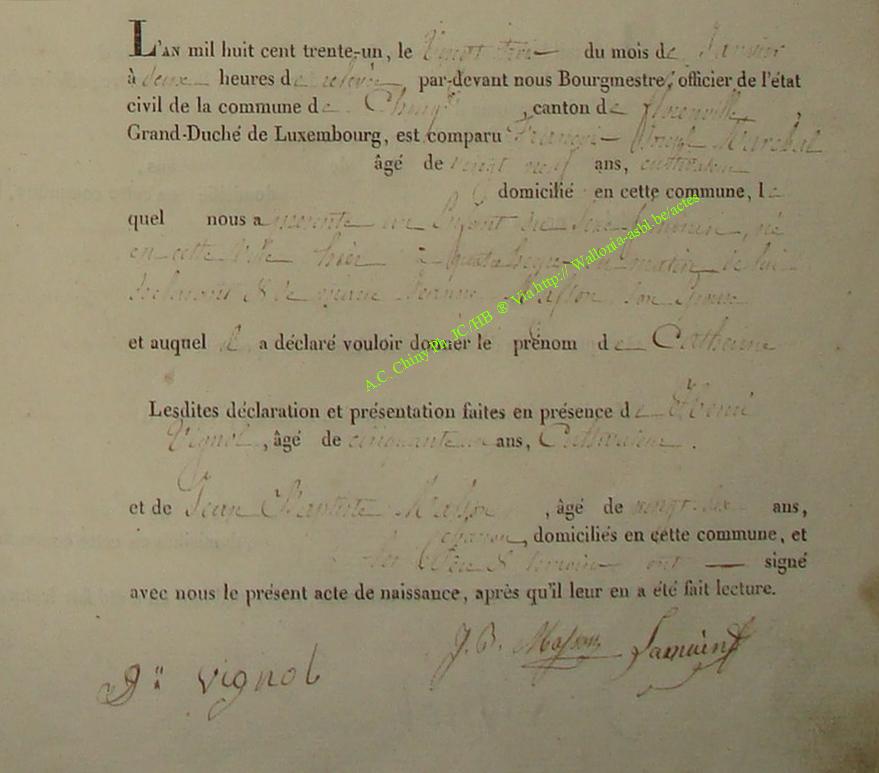 L'AN mil huit cent trente-un, le Vingt trois du mois de Janvier
à deux heures de relevée, par-devant nous Bourgmestre, officier de l'état
civil de la commune de Chiny, canton de florenville,
Grand-Duché de Luxembourg, est comparu François Joseph Marchal
âgé de vingt neuf ans, cultivateur
domicilié en cette commune, le
quel nous a présenté un Enfant du sexe féminin, né
en cette ville hier à quatre heures du matin de lui
déclarant & de marie Jeanne Masson son Epouse
et auquel il a déclaré vouloir donner le prénom de Catherine
Lesdites déclaration et présentation faites en présence de
Vignol, âgé de cinquante ans, Cultivateur.
et de Jean Baptiste Masson, âgé de vingt-six ans,
domiciliés en cette commune, et
les père & témoins ont signé
avec nous le présent acte de naissance, après qu'il leur en a été fait lecture.
J. B. Masson
vignol
A.C. Chiny Ph. JC /HB ® Via http:// Wallonia-asbl.be/actes